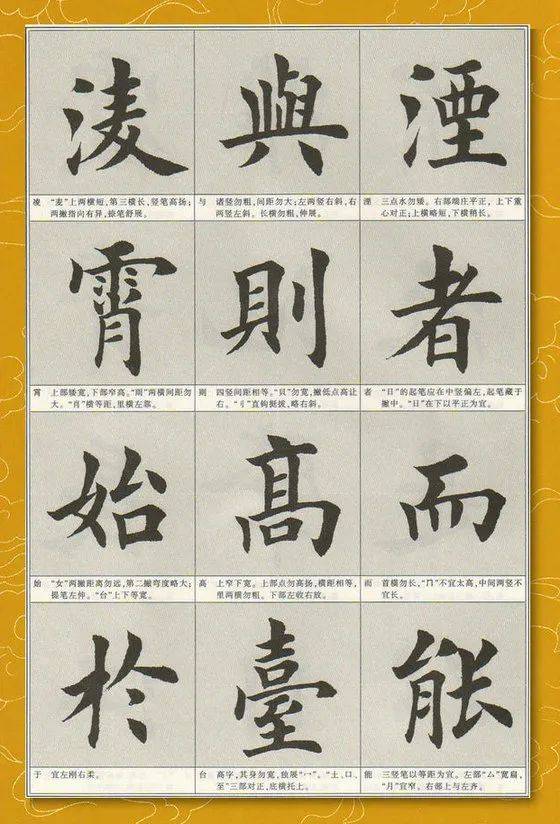 淩 與 湮
凌 “麦”上两横短，第三横长，竖笔高扬；
两撇指向有异，捺笔舒展。
与 诸竖勿粗，间距勿大；左两竖右斜，右
两竖左斜。长横勿粗，伸展。
湮 三点水勿矮。右部端庄平正，上下重
心对正；上横略短，下横稍长。
霄 則 者
霄 上部矮宽，下部窄高。“雨”两横间距勿
大。“肖”横等距，里横左靠。
则 四竖间距相等。“贝”勿宽，撇低点高让
右。“刂”直钩挺拔，略右斜。
者 “日”的起笔应在中竖偏左，起笔藏于
撇中。“日”在下以平正为宜。
始 髙 而
始 “女”两撇距离勿远，第二撇弯度略大；
提笔左伸。“台”上下等宽。
高 上窄下宽。上部点勿高扬，横距相等，
里两横勿粗。下部左收右放。
而 首横勿长，“冂”不宜太高，中间两竖不
宜长。
於 臺 能
于 宜左刚右柔。
台 高字，其身勿宽，独展“冖”。“士、口、
至”三部对正，底横托上。
能 三竖笔以等距为宜。左部“厶”宽扁，
“月”宜窄。右部上与左齐。